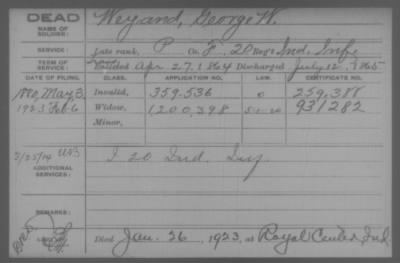 DEAD
NAME OF SOLDIER:
Weyand, George W.
SERVICE:
Late rank, P Co. F, 20 Reg't Ind. Inf.
TERM OF SERVICE:
Enlisted Apr. 27, 1864 Discharged July 12, 1865
DATE OF FILING. CLASS. APPLICATION NO. LAW. CERTIFICATE NO.
May 3, Invalid, 359.536 259,388
1923 Feb 6 Widow, 1200,398 5-1-20 931282
Minor,
3/25/14
I 20 Ind. Inf
ADDITIONAL SERVICES:
REMARKS:
Died Jan. 26, 1923, at Royal Center Ind.